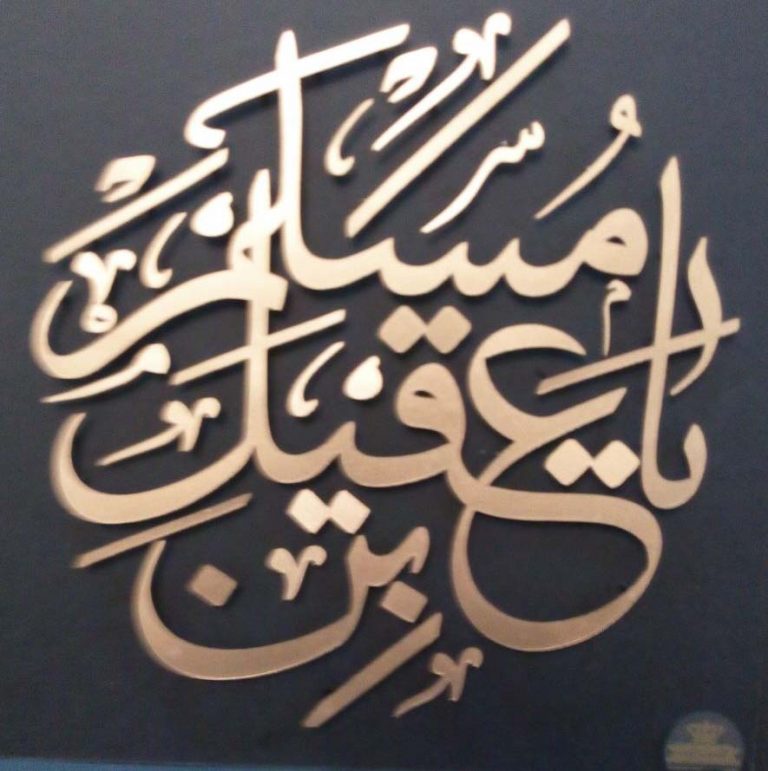 يا مسلم بن عقيل